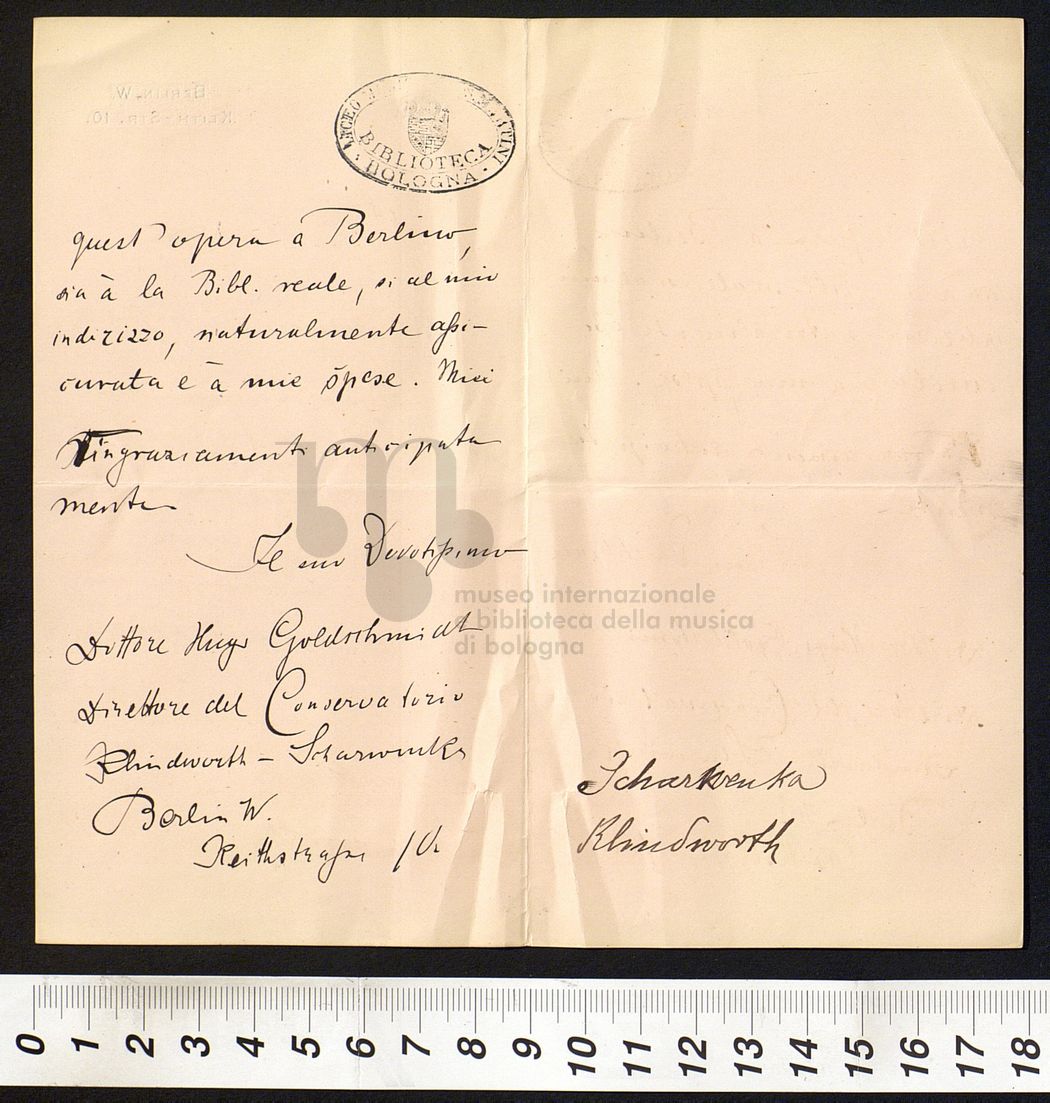 BERLIN. W.
KEITH-STR. 10.
LICEO MUSICALE G. B. MARTINI
BIBLIOTECA
BOLOGNA
quest' opera à Berlino,
sia à la Bibl. reale, si al mio
indirizzo, naturalmente assi-
curata e à mie spese. Miei
Ringraziamenti anticipata
mente
Il suo Devotissimo
Dottore Hugo Goldschmidt
Direttore del Conservatorio
Klindworth - Scharwenka
Berlin W.
Keithstrasse 10.
Scharwenka
Klindworth
museo internazionale
e biblioteca della musica
di bologna
0 1 2 3 4 5 6 7 8 9 10 11 12 13 14 15 16 17 18